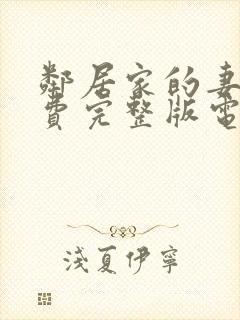 鄰居家的妻
費完整版電
淺夏伊寧